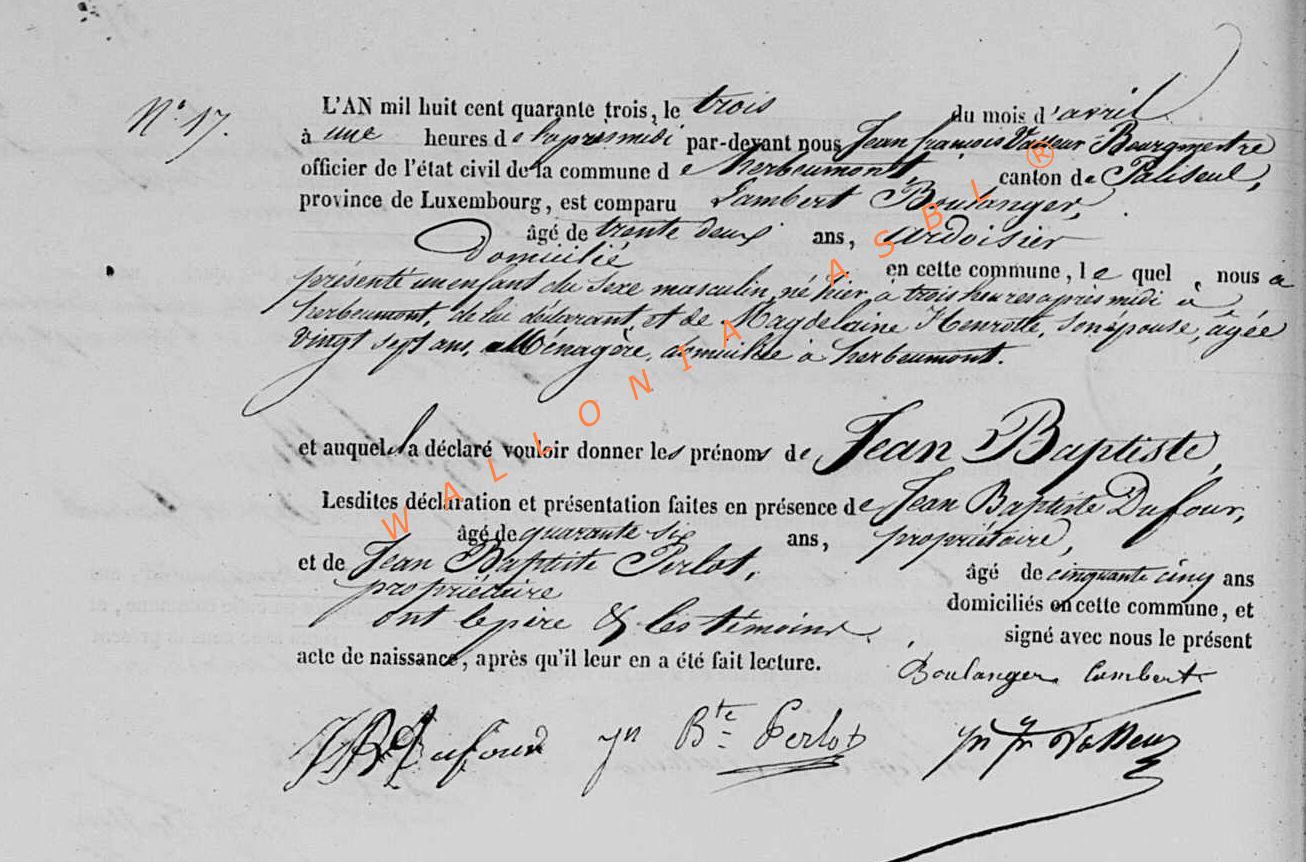 N° 17.
L'AN mil huit cent quarante trois, le trois du mois d'avril
à une heures de laprès midi par-devant nous Jean françois Vasseur Bourgmestre
officier de l'état civil de la commune de herbeumont, canton de Paliseul,
province de Luxembourg, est comparu Lambert Boulanger,
âgé de trente deux ans, ardoisier
Domicilié en cette commune, le quel, nous a
présenté un enfant du sexe masculin, né hier, à trois heures après midi à
herbeumont, de lui déclarant, et de Magdelaine Henrotte, son épouse, âgée
vingt sept ans, Ménagère, domiciliée à herbeumont.
et auquel il a déclaré vouloir donner les prénoms de Jean Baptiste,
Lesdites déclaration et présentation faites en présence de Jean Baptiste Dufour,
âgé de quarante six ans, propriétaire,
et de Jean Baptiste Perlot, âgé de cinquante cinq ans
propriétaire domiciliés en cette commune, et
ont le père & les témoins signé avec nous le présent
acte de naissance, après qu'il leur en a été fait lecture.
Boulanger Lambert
JB Dufour Jn Bte Perlot
WALLONIA ASBL ®